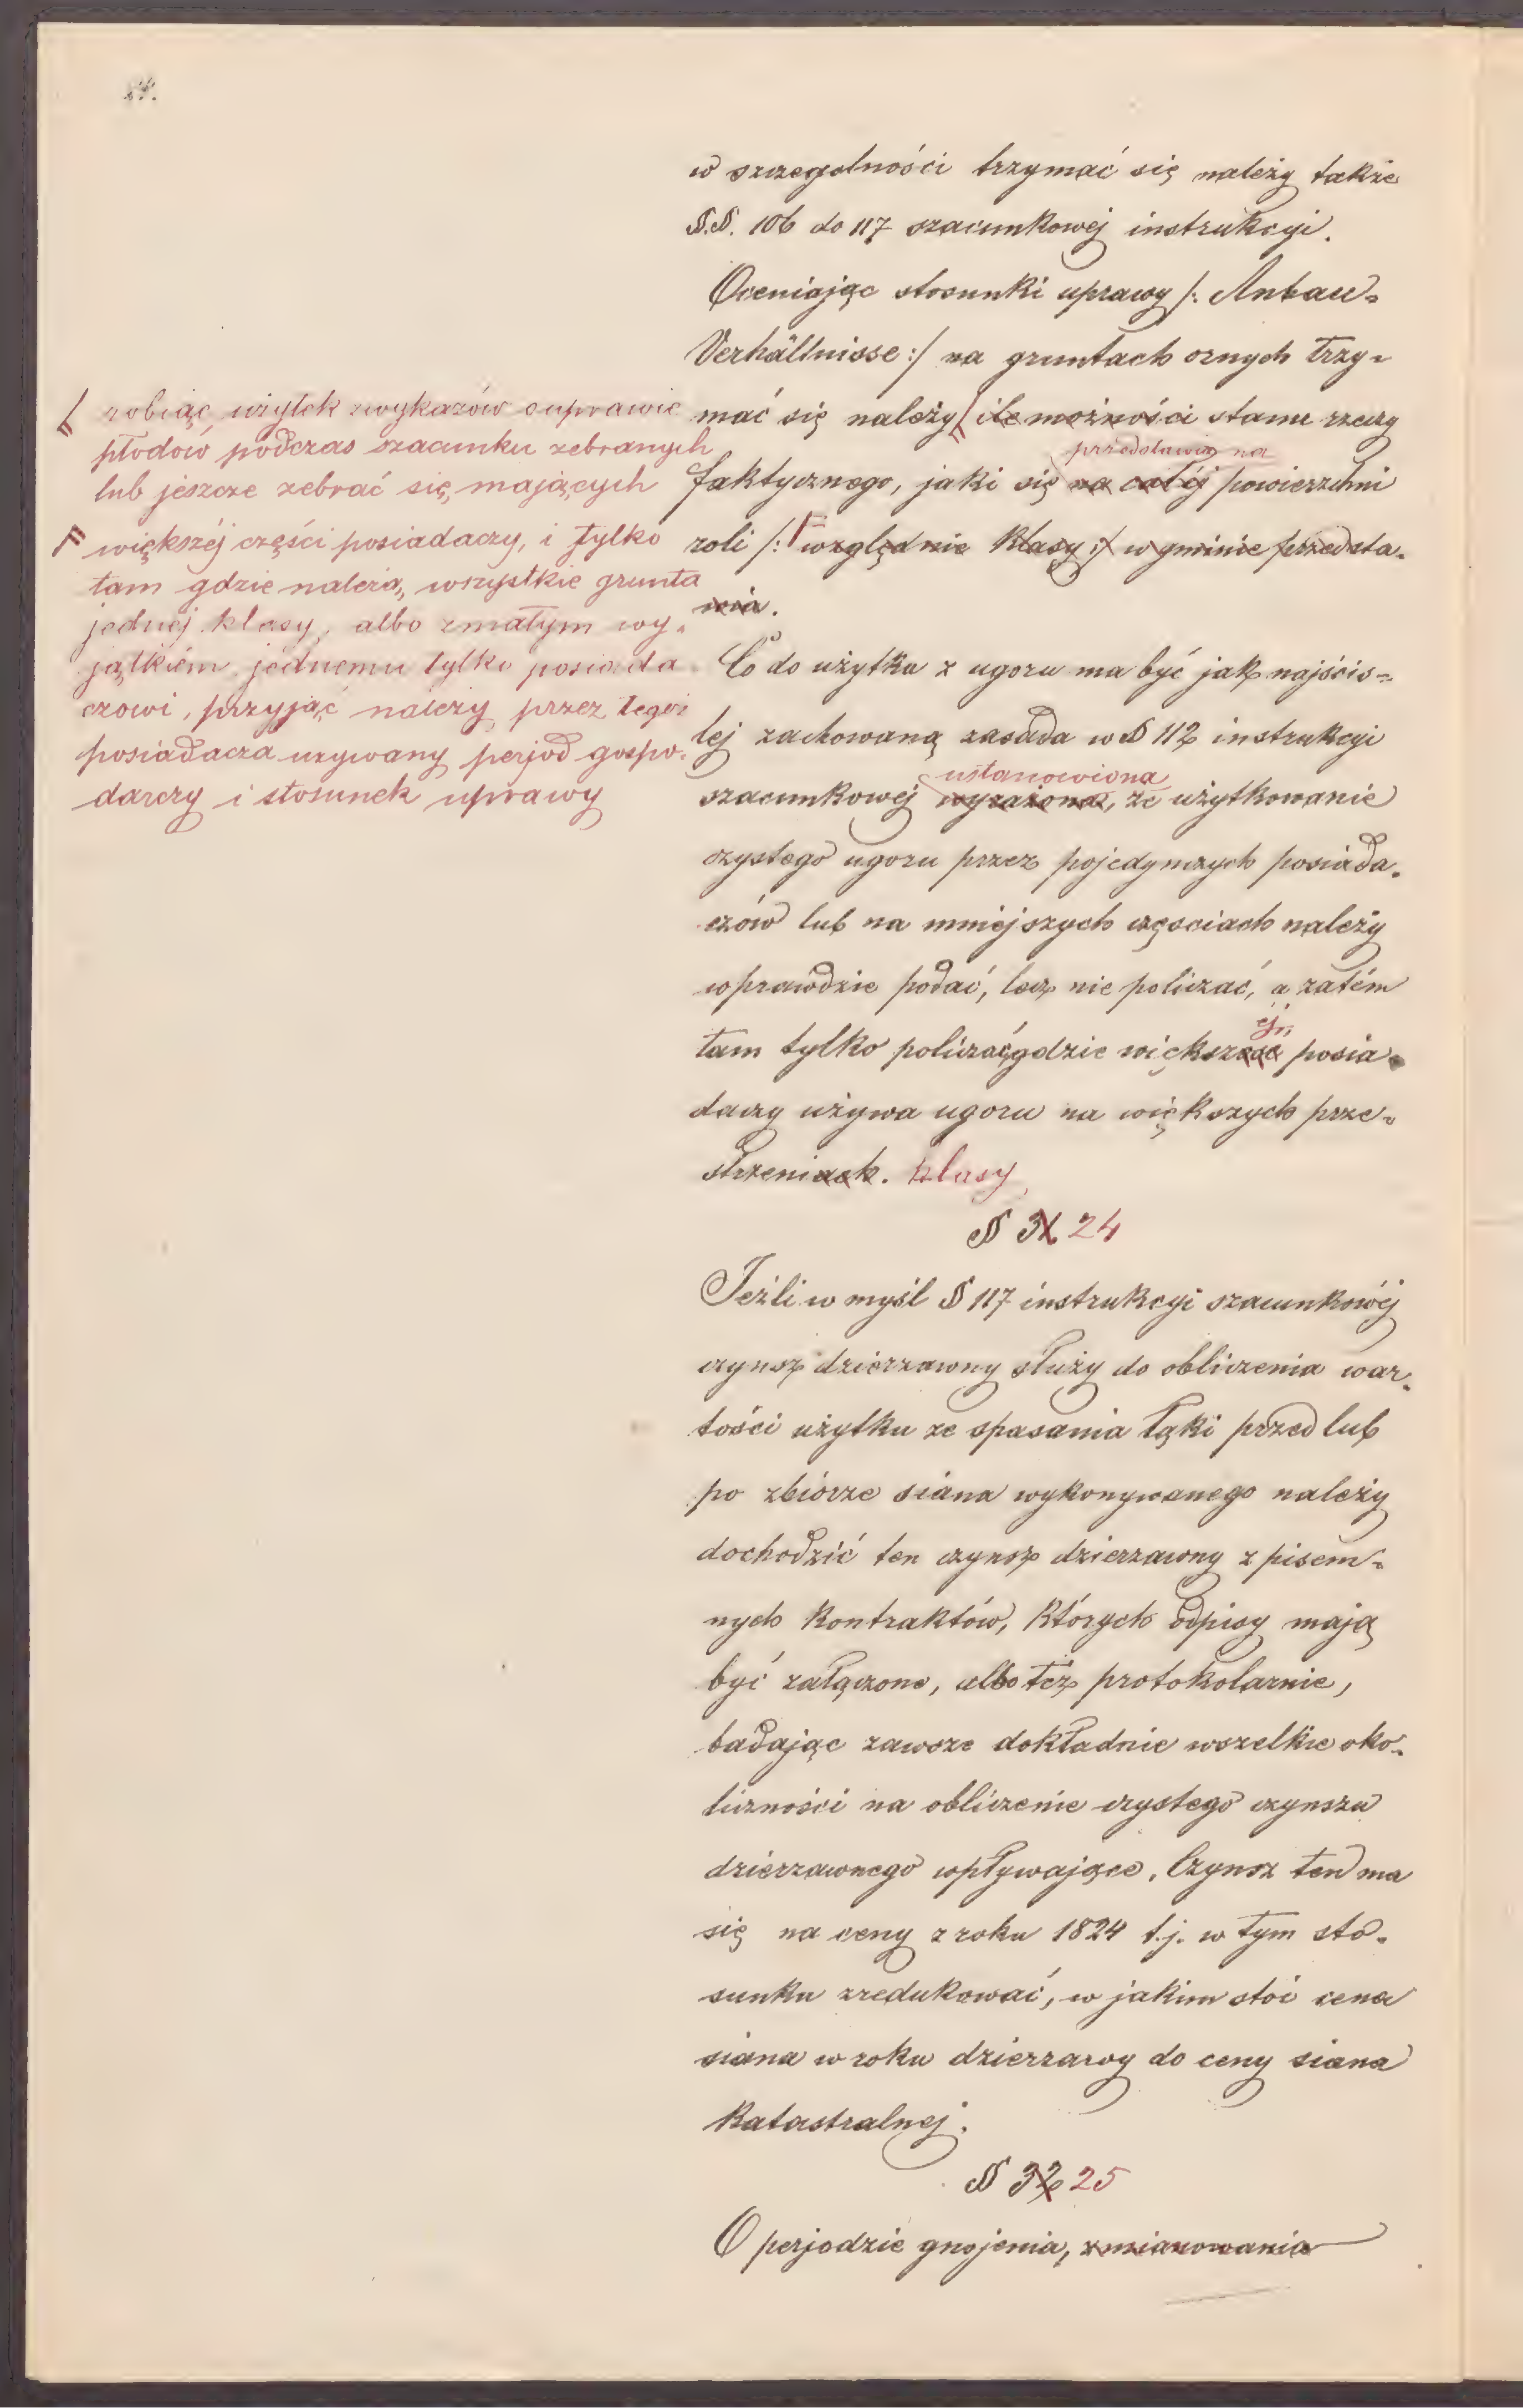 w szczegolności trzymać się należy także
§.§. 106 do 117 szacunkowej instrukcyi.
Oceniając stosunki uprawy /: Anbau=
Verhältnisse :/ na gruntach ornych trzy=
mać się należy ile możności stanu rzeczy
przedstawia na
faktycznego, jaki się na całéj powierzchni
roli /: względnie klasy :/ w gminie przedsta=
wia.
robiąc użytek z wykazów o uprawie
płodów podczas szacunku zebranych
lub jeszcze zebrać się mających
F większéj części posiadaczy, i tylko
tam gdzie należą, wszystkie grunta
jednéj klasy, albo z małym wy=
jątkiém jednemu tylko posiada
czowi, przyjąć należy przez tegoż
posiadacza uzywany perjod gospo=
darczy i stosunek uprawy
Co do użytku z ugoru ma być jak najściś=
lej zachowaną zasada w § 112 instrukcyi
ustanowiona
szacunkowej wyrażona, że użytkowanie
czystego ugoru przez pojedynczych posiada=
czów lub na mniejszych częściach należy
wprawdzie podać, lecz nie policzać, a zatém
ej
tam tylko policzać gdzie większość posia=
daczy używa ugoru na większych prze=
strzeniach. klasy
§ 31 24
Jeźli w myśl § 117 instrukcyi szacunkowéj
czynsz dzierzawny służy do obliczenia war=
tości użytku ze spasania łąki przed lub
po zbiórze siana wykonywanego należy
dochodzić ten czynsz dzierzawny z pisem=
nych kontraktów, których odpisy mają
być załączone, albo też protokolarnie,
badając zawsze dokładnie wszelkie oko=
liczności na obliczenie czystego czynszu
dzierzawnego wpływające. Czynsz ten ma
się na ceny z roku 1824 t.j. w tym sto=
sunku zredukować, w jakim stoi cena
siana w roku dzierzawy do ceny siana
Katastralnej.
§ 32 25
O perjodzie gnojenia, zmianowania